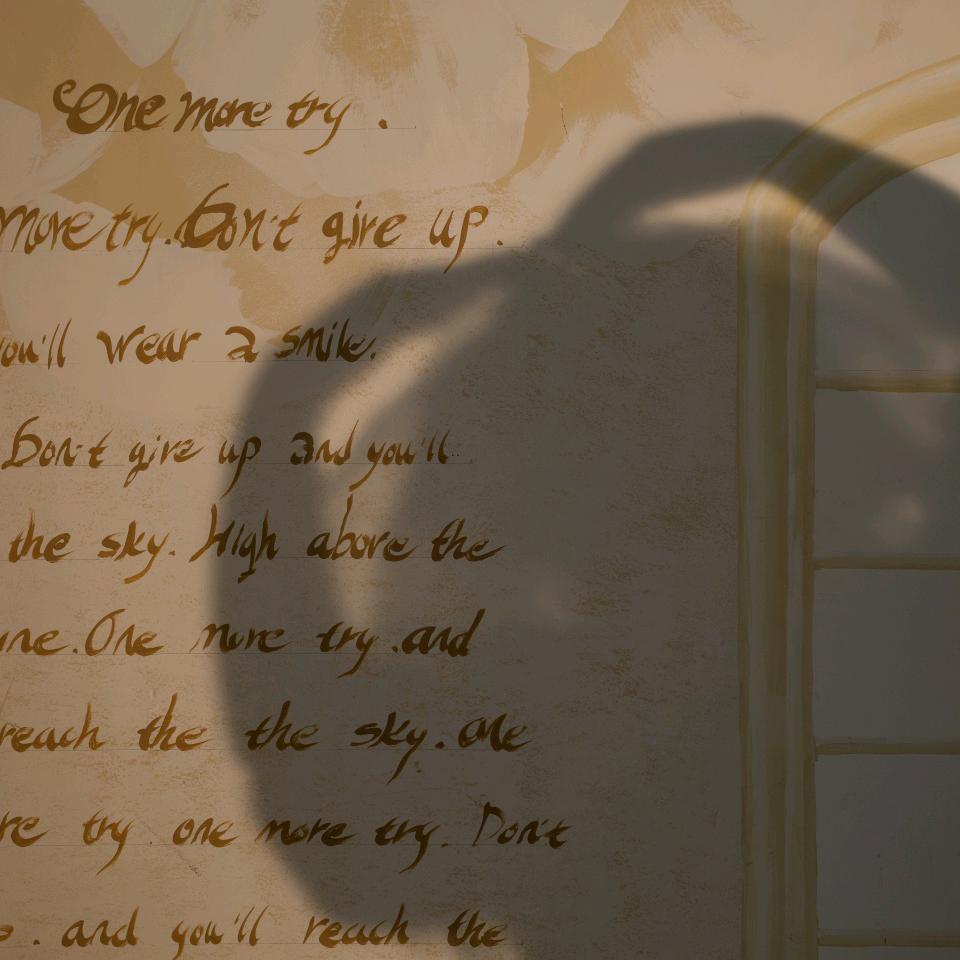 One more try .
More try. Don't give up .
you'll wear a smile.
. Don't give up and you'll
the sky. High above the
. One more try .and
reach the the sky. one
try one more try. Don't
. and you'll reach the